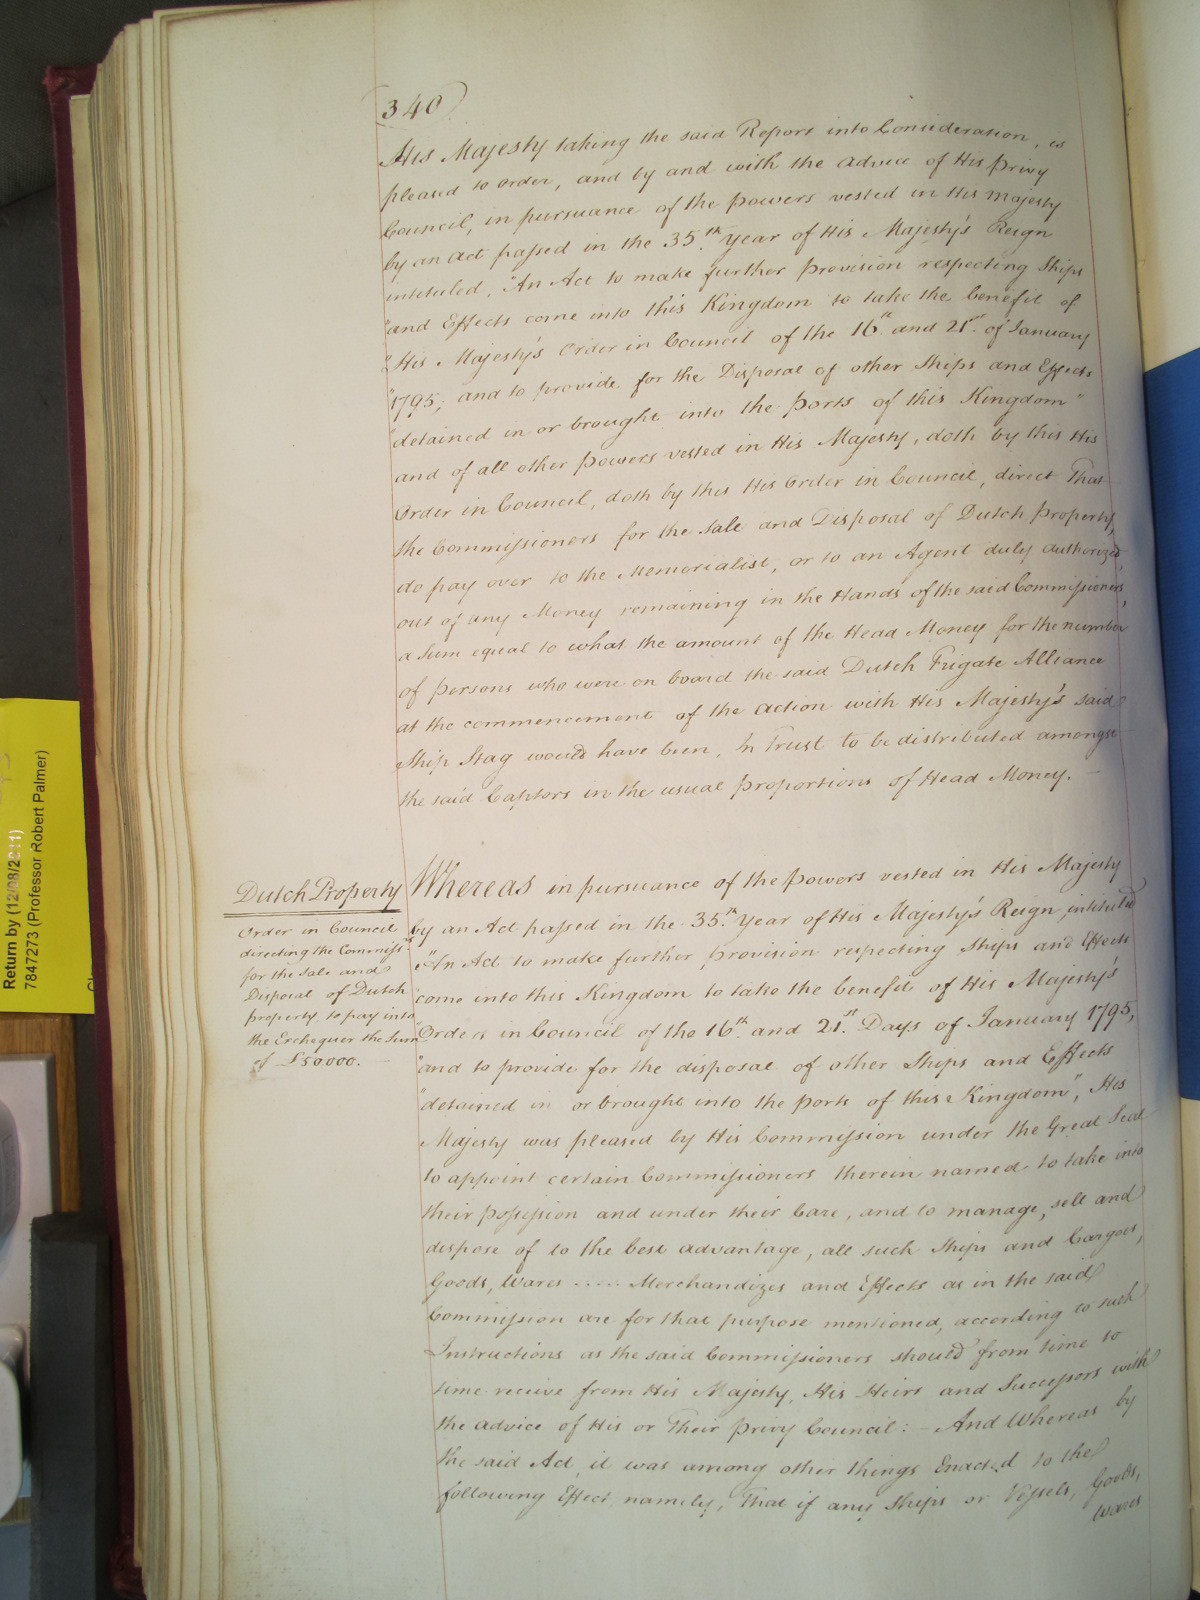 340
His Majesty taking the said Report into Consideration, is
pleased to order, and by and with the advice of His Privy
Council, in pursuance of the powers vested in His Majesty
by an Act passed in the 35.th year of His Majesty's Reign
intituled, "An Act to make further provision respecting Ships
"and Effects come into this Kingdom to take the benefit of
"His Majesty's Order in Council of the 16.th and 21.st of January
"1795, and to provide for the Disposal of other Ships and Effects
"detained in or brought into the Ports of this Kingdom"
and of all other powers vested in His Majesty, doth by this His
Order in Council, doth by this His Order in Council, direct That
the Commissioners for the Sale and Disposal of Dutch property,
do pay over to the Memorialist, or to an Agent duly authorized,
out of any Money remaining in the Hands of the said Commissioners,
a Sum equal to what the amount of the Head Money for the number
of persons who were on board the said Dutch Frigate Alliance
at the commencement of the Action with His Majesty's said
Ship Stag would have been, In Trust to be distributed amongst
the said Captors in the usual proportions of Head Money. —
Dutch Property
Order in Council
directing the Commiss.rs
for the Sale and
Disposal of Dutch
property, to pay into
the Exchequer the Sum
of £50000.
Whereas in pursuance of the powers vested in His Majesty
by an Act passed in the 35.th Year of His Majesty's Reign, intituled
"An Act to make further provision respecting Ships and Effects
"come into this Kingdom to take the benefit of His Majesty's
"Orders in Council of the 16.th and 21.st Days of January 1795,
"and to provide for the disposal of other Ships and Effects
"detained in or brought into the ports of this Kingdom", His
Majesty was pleased by His Commission under the Great Seal
to appoint certain Commissioners therein named to take into
their possession and under their Care, and to manage, sell and
dispose of to the best advantage, all such Ships and Cargoes,
Goods, Wares ..... Merchandizes and Effects as in the said
Commission are for that purpose mentioned, according to such
Instructions as the said Commissioners should from time to
time receive from His Majesty, His Heirs and Successors with
the advice of His or Their Privy Council: - And Whereas by
the said Act, it was among other things Enacted to the
following Effect, namely, That if any Ships or Vessels, Goods,
Wares
Return by (12/08/2011)
7847273 (Professor Robert Palmer)